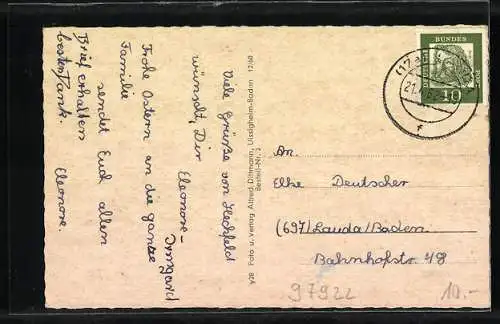 Viele Grüße von Hochfeld
wünscht, Dir
Eleonore-
Irmgard
Frohe Ostern an die ganze
Familie
sendet Euch allen
Eleonore.
Brief erhalten
besten Dank.
V28 Foto u. Verlag Alfred Dittmann, Uissigheim-Baden 12/60
Bestell-Nr. 3
DEUTSCHE BUNDESPOST
10
An.
Elke Deutscher
(697) Lauda/Baden
Bahnhofstr. 48
97922
10.-